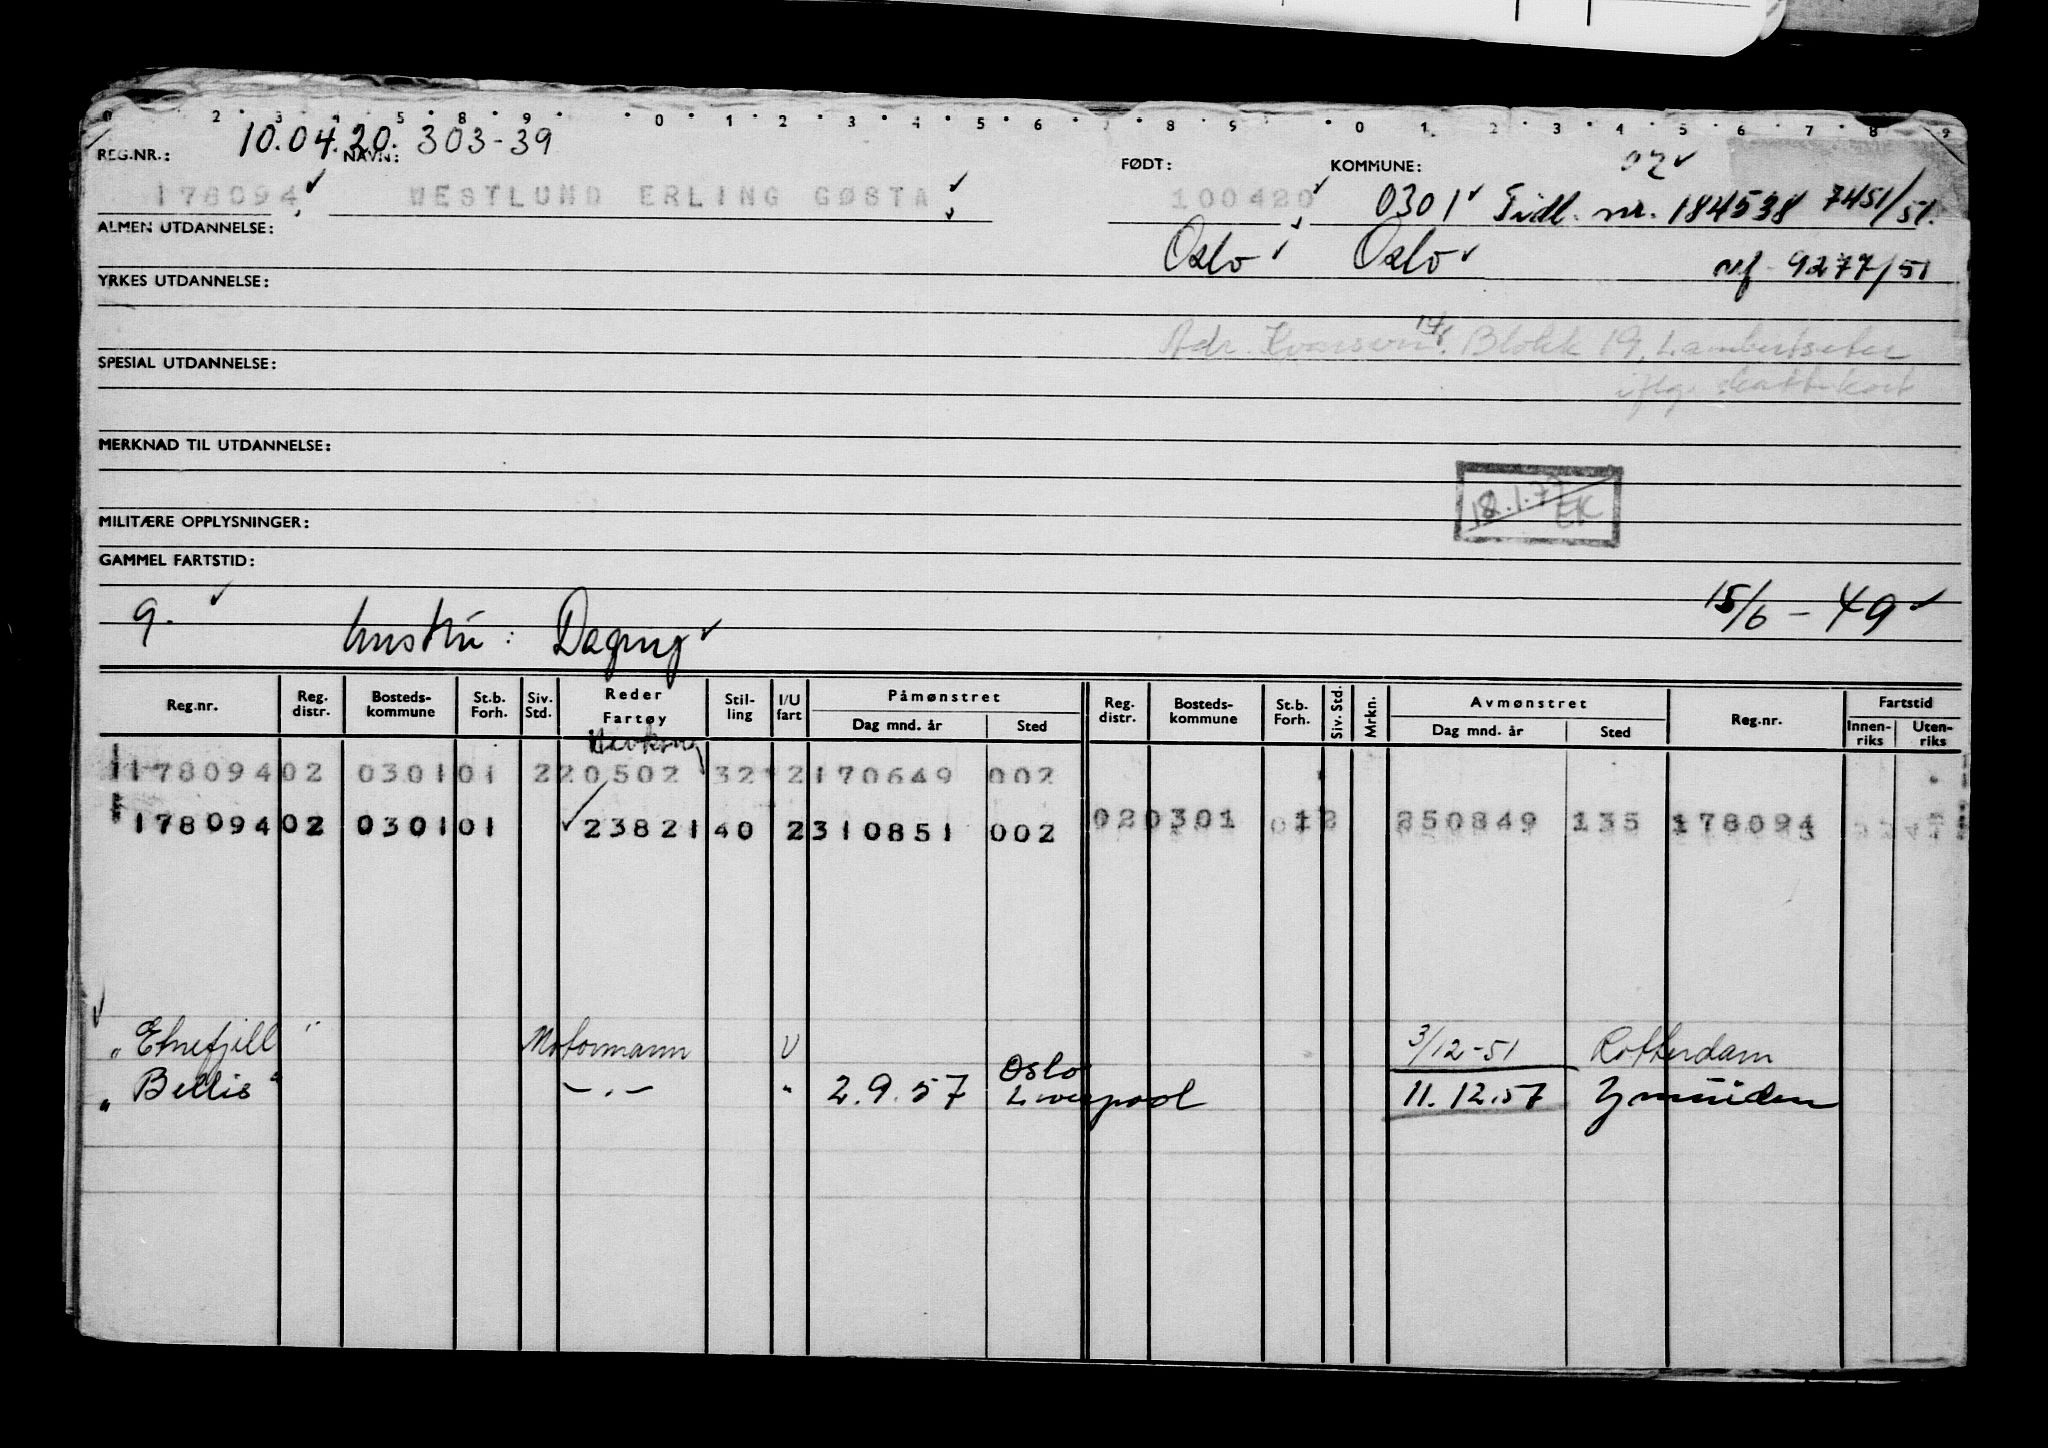 0 2 3 4 5 8 9 0 1 2 3 4 5 6 7 8 9 0 1 2 3 4 5 6 7 8 9
10.04.20. 303-39
REG.NR.: NAVN: FØDT: KOMMUNE: 02
178094 WESTLUND ERLING GØSTA 100420 0301 Tidl. nr. 184538 7451/51.
ALMEN UTDANNELSE: Oslo Oslo 9277/51
YRKES UTDANNELSE:
Adr. Blokk 19, Lambertseter
SPESIAL UTDANNELSE:
iflg. skattekort
MERKNAD TIL UTDANNELSE:
18.1.77 EK
MILITÆRE OPPLYSNINGER:
GAMMEL FARTSTID:
g. hustru: Dagny 15/6-49
Reg.nr. Reg. distr. Bosteds-kommune St.b. Forh. Siv. Std. Reder Fartøy Stil-ling I/U fart Påmønstret Dag mnd. år Sted Reg. distr. Bosteds-kommune St.b. Forh. Siv. Std. Mrkn. Avmønstret Dag mnd. år Sted Reg.nr. Fartstid Innen-riks Uten-riks
178094 02 0301 01 2 20502 32 2 170649 002
178094 02 0301 01 23821 40 2 310851 002 02 0301 01 2 250849 135 178094
"Etnefjell" Motormann U 3/12-51 Rotterdam
Oslo
"Bellis" -.- " 2.9.57 Liverpool 11.12.57 Ymuiden